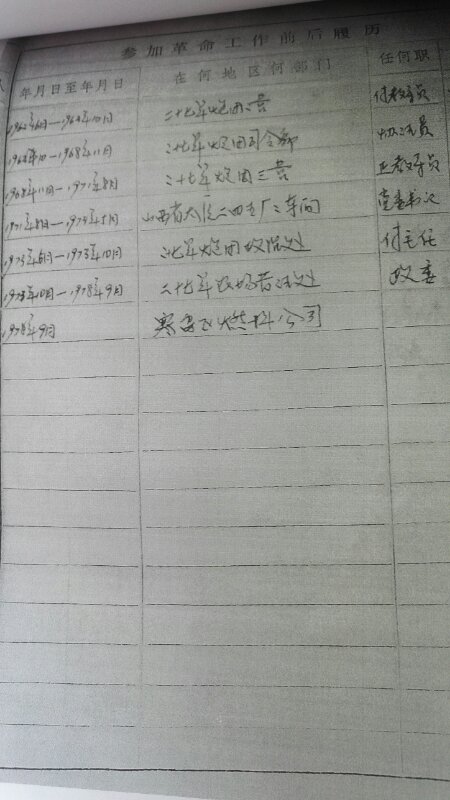 参加革命工作前后履历
年月日至年月日 在何地区何部门 任何职
1964年10月 二十七军炮团一营 付教导员
1964年10—1968年11月 二十七军炮团司令部 协理员
1968年11月—1971年8月 二十七军炮团三营 正教导员
1971年8月— 山西省太原二四七厂二车间 党委书记
1973年5月—1973年10月 二七军炮团政治处 付主任
1973年10月—1978年9月 二十七军农场 政委
1978年9月 燃料公司